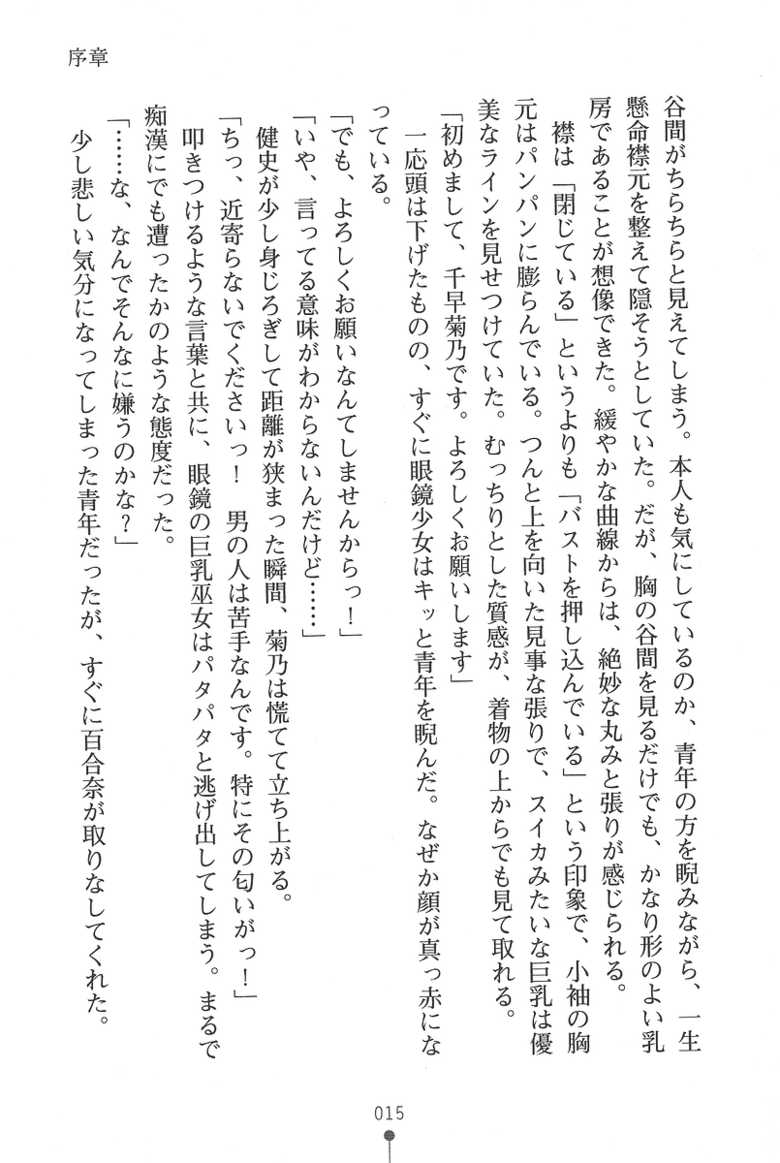 序章
谷間がちらちらと見えてしまう。本人も気にしているのか、青年の方を睨みながら、一生
懸命襟元を整えて隠そうとしていた。だが、胸の谷間を見るだけでも、かなり形のよい乳
房であることが想像できた。緩やかな曲線からは、絶妙な丸みと張りが感じられる。
襟は「閉じている」というよりも「バストを押し込んでいる」という印象で、小袖の胸
元はパンパンに膨らんでいる。つんと上を向いた見事な張りで、スイカみたいな巨乳は優
美なラインを見せつけていた。むっちりとした質感が、着物の上からでも見て取れる。
「初めまして、千早菊乃です。よろしくお願いします」
一応頭は下げたものの、すぐに眼鏡少女はキッと青年を睨んだ。なぜか顔が真っ赤にな
っている。
「でも、よろしくお願いなんてしませんからっ！」
「いや、言ってる意味がわからないんだけど……」
健史が少し身じろぎして距離が狭まった瞬間、菊乃は慌てて立ち上がる。
「ちっ、近寄らないでくださいっ！　男の人は苦手なんです。特にその匂いがっ！」
叩きつけるような言葉と共に、眼鏡の巨乳巫女はパタパタと逃げ出してしまう。まるで
痴漢にでも遭ったかのような態度だった。
「……な、なんでそんなに嫌うのかな？」
少し悲しい気分になってしまった青年だったが、すぐに百合奈が取りなしてくれた。
015